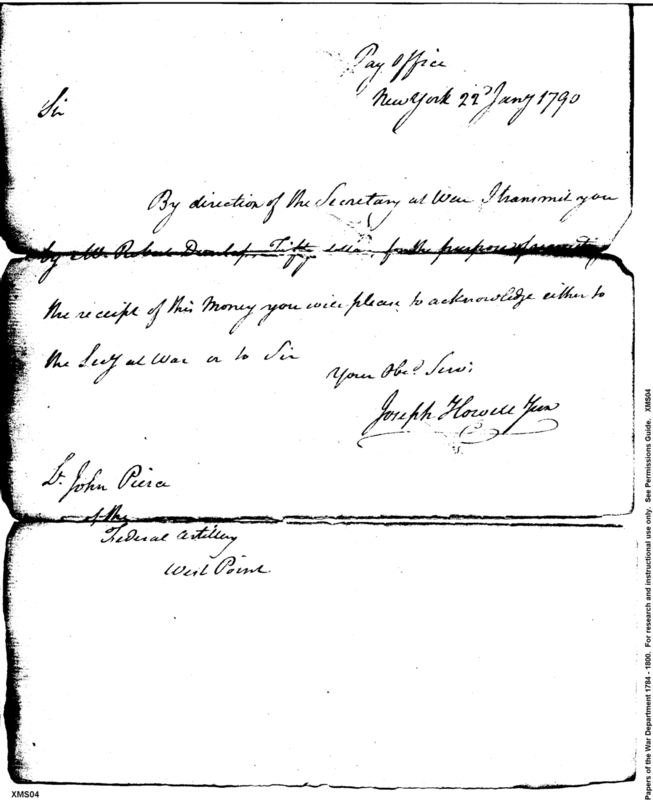 Pay Office
New York 22d Jany 1790
Sir
By direction of the Secretary at War I transmit you
by Mr. Robert Dunlap, Fifty dollrs, for the purpose of recruiting
the receipt of this Money you will please to acknowledge either to
the Secy at War or to Sir
Your Obed. Serv:
Joseph Howell Jun
Lt. John Pierce
of the
Federal Artillery
West Point
XMS04
Papers of the War Department 1784 - 1800. For research and instructional use only. See Permissions Guide. XMS04